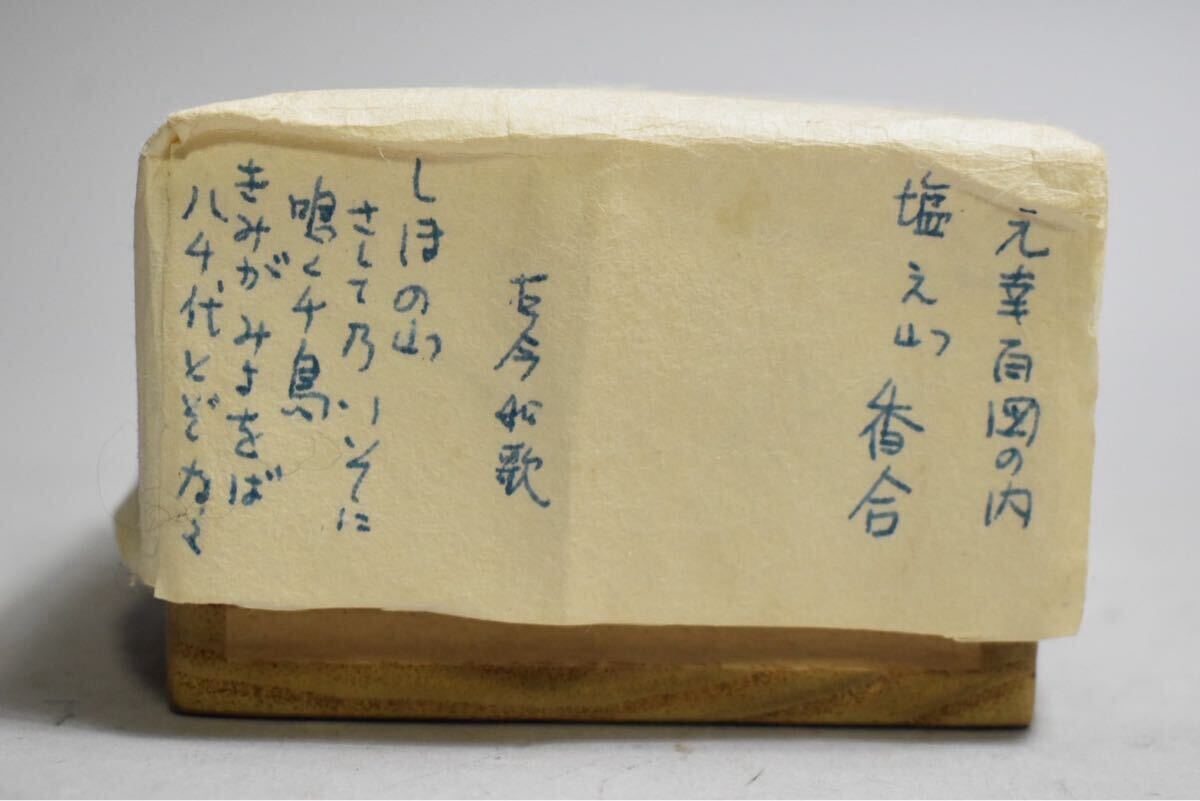 元幸百図の内
塩え山 香合
古今和歌
しほの山
さして乃いそに
鳴く千鳥
きみがみよをば
八千代とぞなく